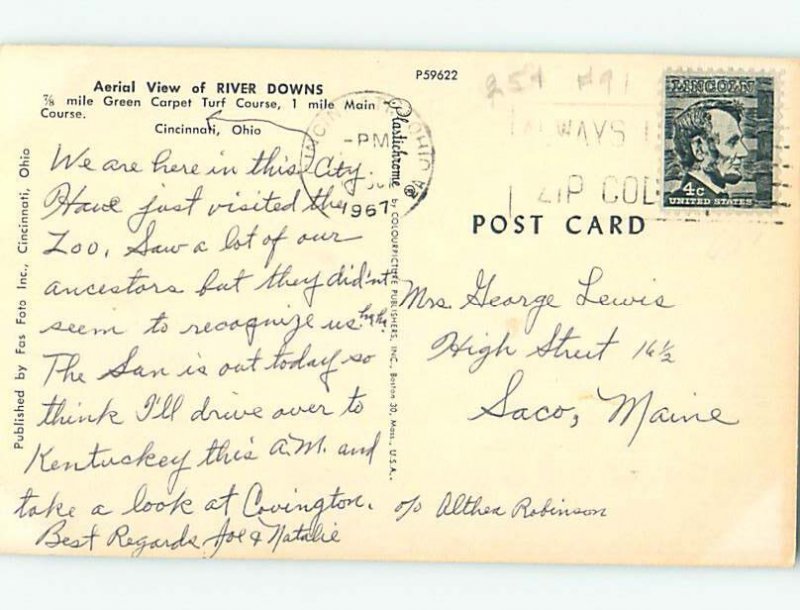 P59622
Aerial View of RIVER DOWNS
⅞ mile Green Carpet Turf Course, 1 mile Main
Course.
Cincinnati, Ohio
We are here in this City.
Have just visited the
Zoo. Saw a lot of our
ancestors but they did'nt
seem to recognize us. hy hy.
The Sun is out today so
think I'll drive over to
Kentuckey this A.M. and
take a look at Covington.
Best Regards Joe & Natalie
Published by Fas Foto Inc., Cincinnati, Ohio
Plastichrome ® by COLOURPICTURE PUBLISHERS, INC., Boston 30, Mass., U.S.A.
25¢ #91
OHIO
-PM
1967
ALWAYS
ZIP COD
LINCOLN
4c
UNITED STATES
POST CARD
Mrs. George Lewis
High Street 16½
Saco, Maine
c/o Althea Robinson